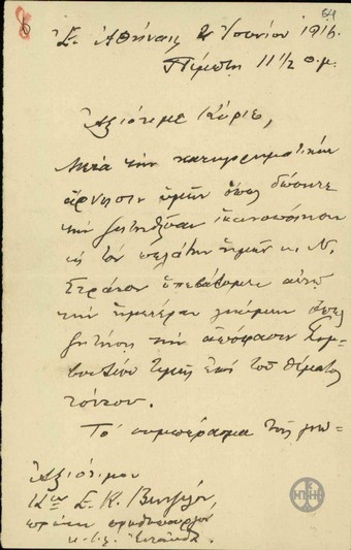 64
Ἐ. Ἀθήναις 2 Ἰουνίου 1916.
Πέμπτη 11 1/2 π.μ.
Ἀξιότιμε Κύριε,
Μετὰ τὴν κατηγορηματικὴν
ἄρνησιν ὑμῶν ὅπως δώσητε
τὴν ζητηθεῖσαν ἱκανοποίησιν
εἰς τὸν πελάτην ἡμῶν κ. Ν.
Στράτον ὑπεβάλομεν αὐτῷ
τὴν ἡμετέραν γνώμην ὅπως
ζητήσῃ τὴν ἀπόφασιν Συμ-
βουλίου Τιμῆς ἐπὶ τοῦ θέματος
τούτου.
Τὸ συμπέρασμα τῆς γνώ-
Ἀξιότιμον
Κον Ε. Κ. Βενιζέλον
πρώην πρωθυπουργὸν
κ.τ.λ. Ἐνταῦθα